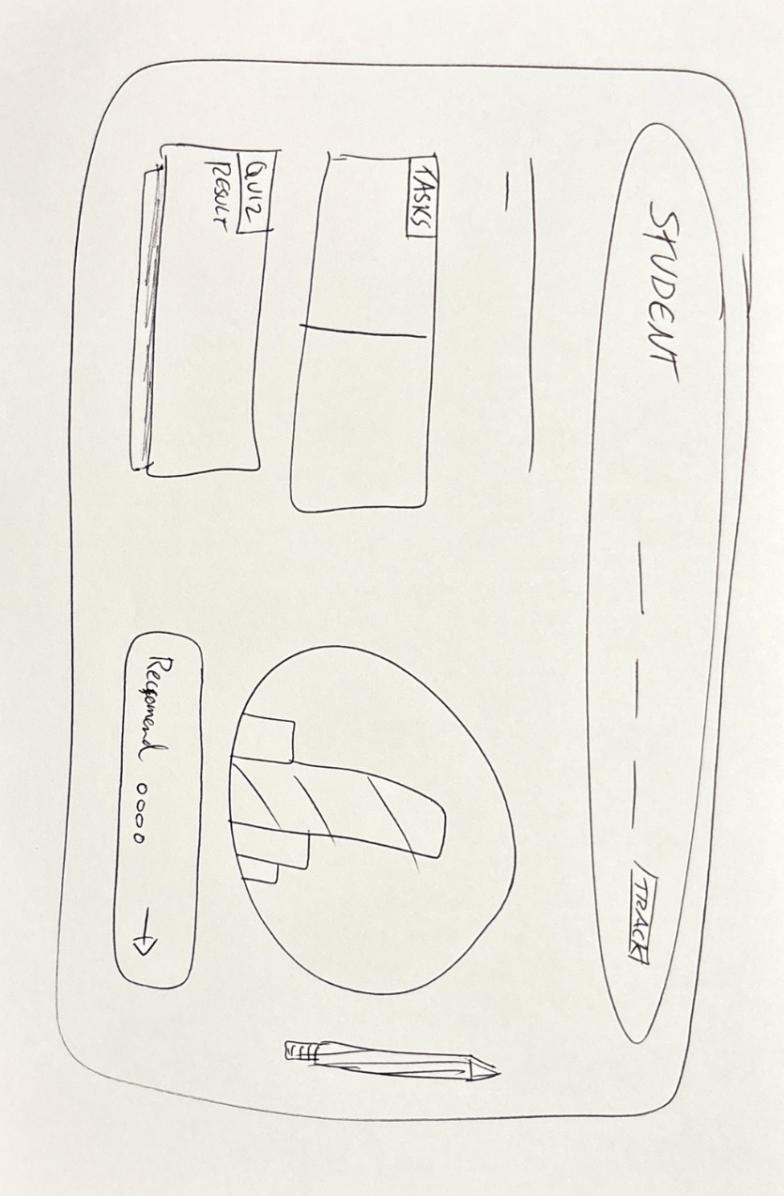 STUDENT
TRACK
TASKS
QUIZ
RESULT
Recommend